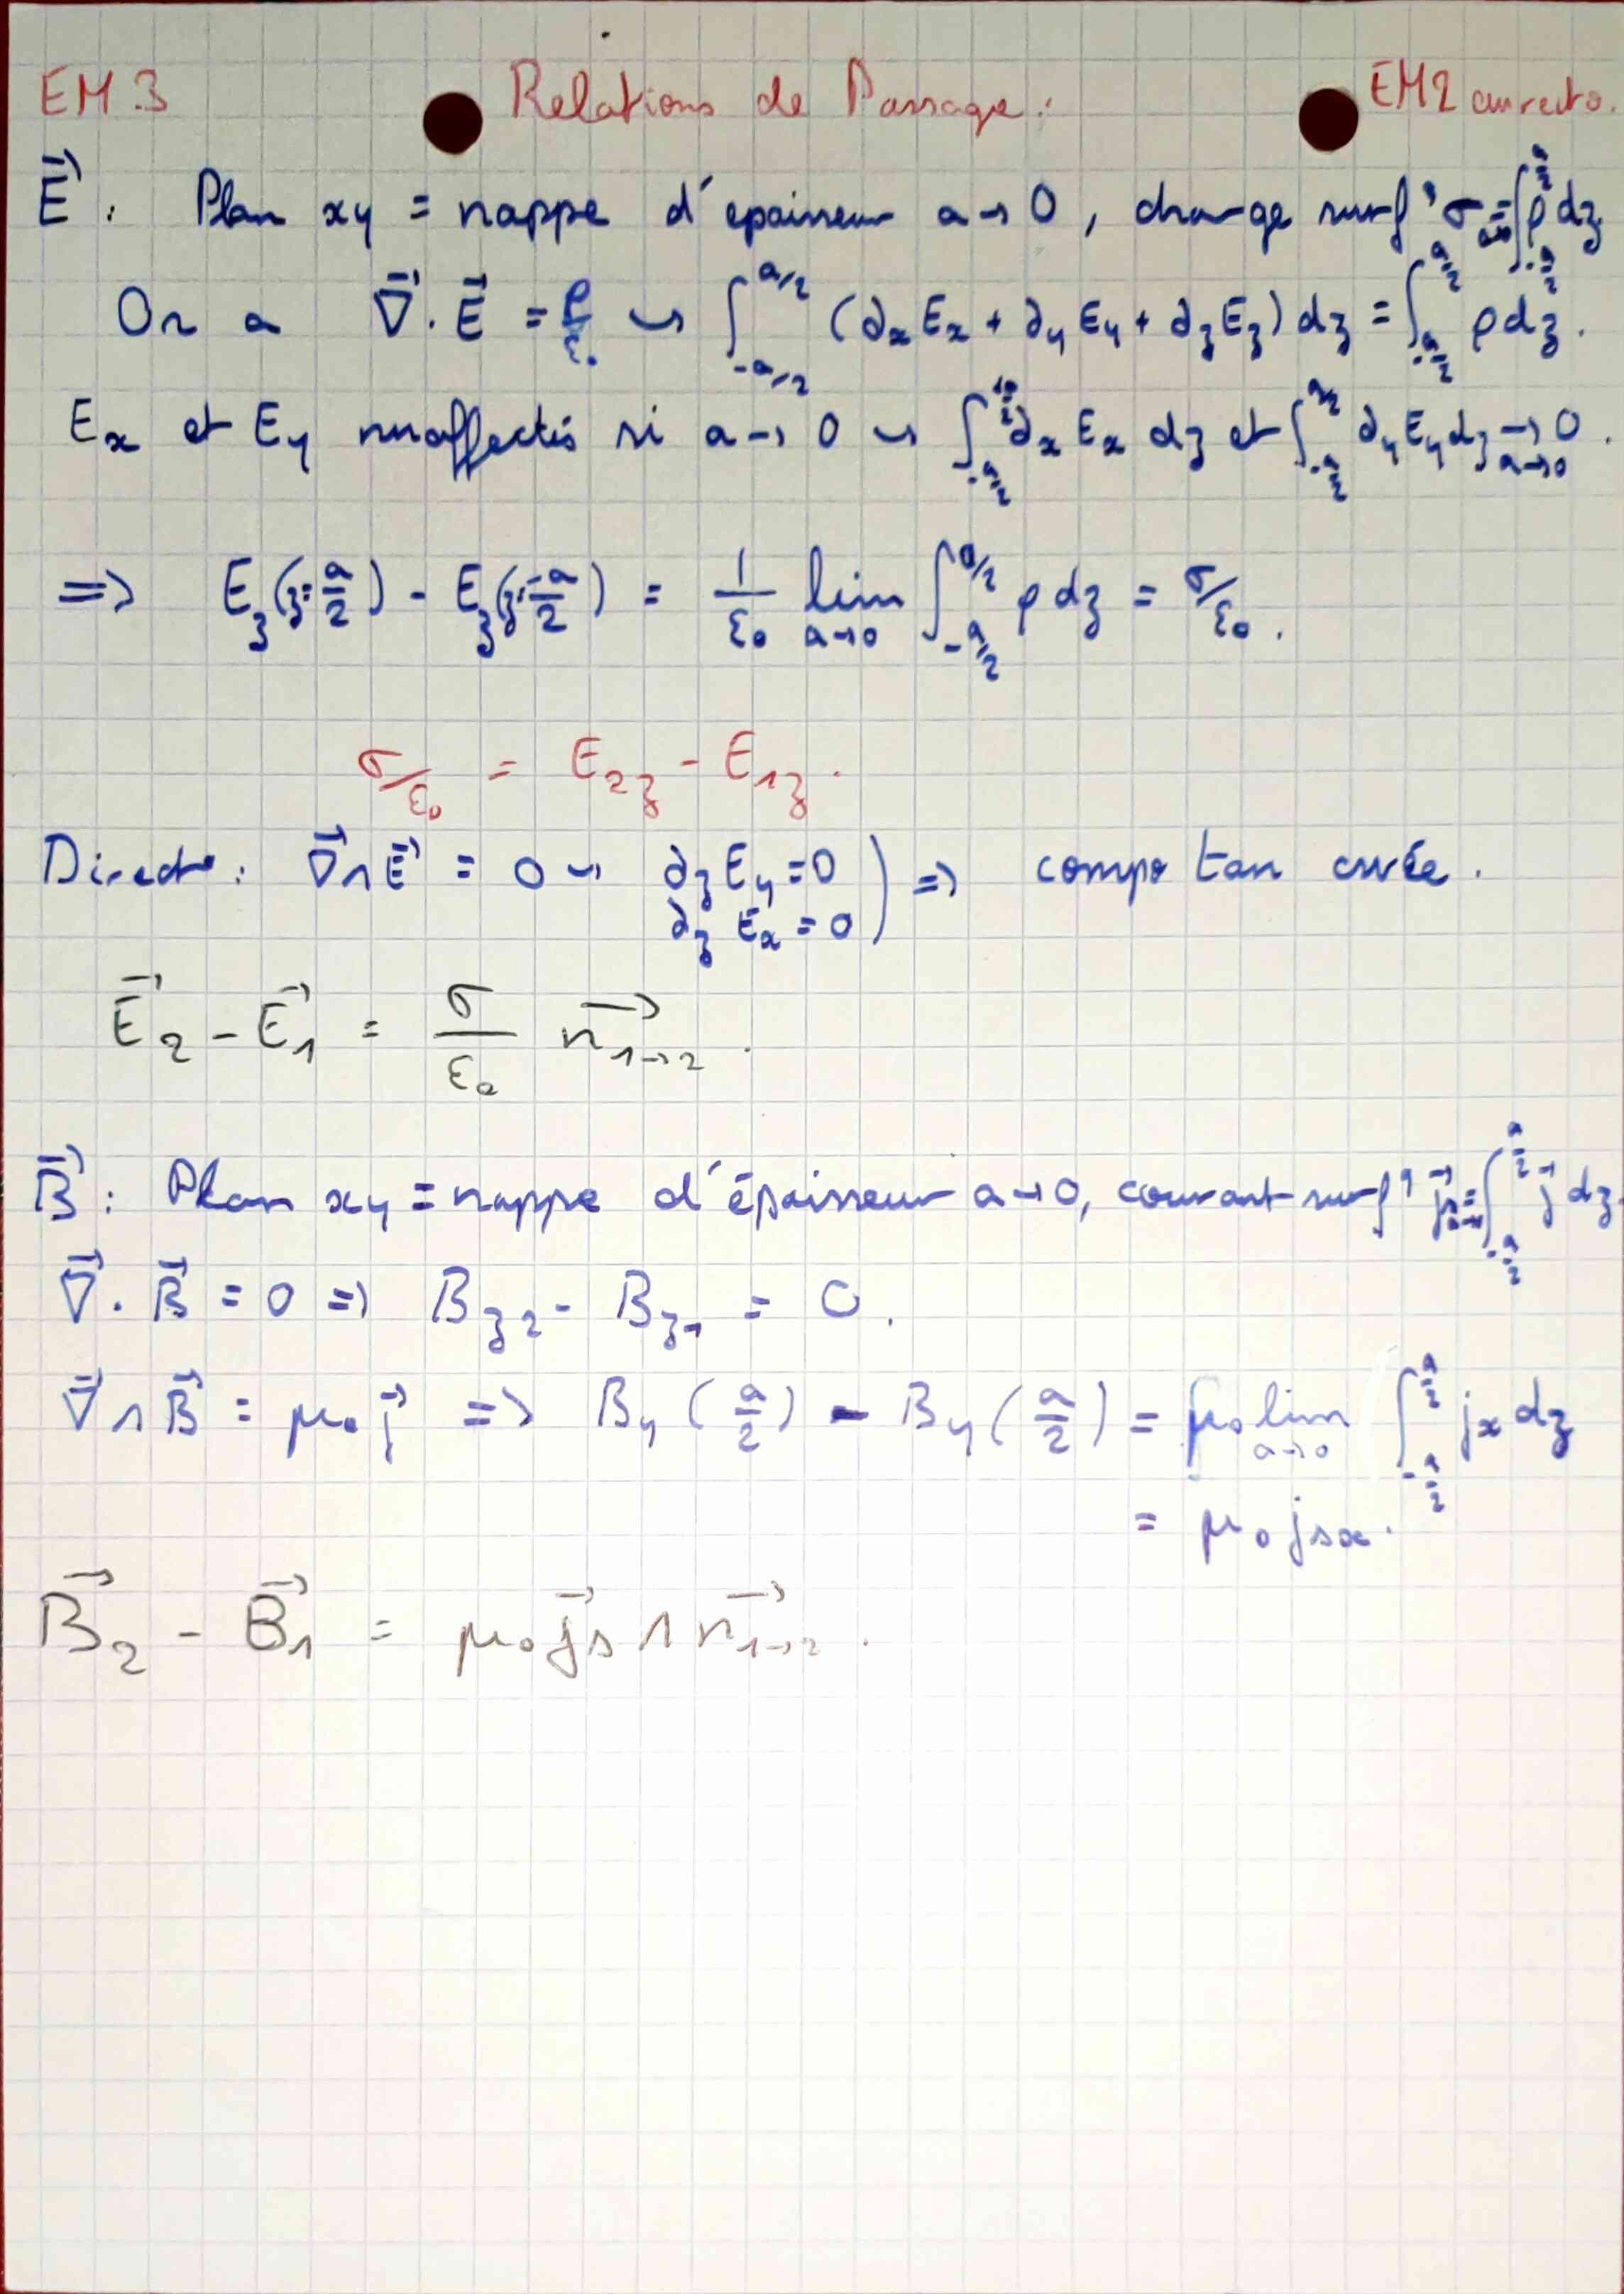 EM.3 Relations de Passage : EM2 au recto.
$\vec{E}$ : Plan xy = nappe d'epaisseur a → 0, charge surf° $\sigma \underset{a→0}{=} \int_{-\frac{a}{2}}^{\frac{a}{2}} \rho dz$
On a $\vec{\nabla} . \vec{E} = \frac{\rho}{\epsilon_0}$ ↪ $\int_{-a/2}^{a/2} (\partial_x E_x + \partial_y E_y + \partial_z E_z) dz = \int_{-\frac{a}{2}}^{\frac{a}{2}} \rho dz$.
$E_x$ et $E_y$ si a → 0 ↪ $\int_{-\frac{a}{2}}^{\frac{a}{2}} \partial_x E_x dz$ et $\int_{-\frac{a}{2}}^{\frac{a}{2}} \partial_y E_y dz \underset{a→0}{→} 0$.
⇒ $E_z(z=\frac{a}{2}) - E_z(z=\frac{-a}{2}) = \frac{1}{\epsilon_0} \lim_{a→0} \int_{-a/2}^{a/2} \rho dz = \sigma/\epsilon_0$.
$\sigma/\epsilon_0 = E_{2z} - E_{1z}$.
Directe : $\vec{\nabla} \wedge \vec{E} = 0$ ↪ $\partial_z E_y = 0$ ) ⇒ compo tan .
$\partial_z E_x = 0$
$\vec{E}_2 - \vec{E}_1 = \frac{\sigma}{\epsilon_0} \overrightarrow{n_{1→2}}$.
$\vec{B}$ : Plan xy = nappe d'épaisseur a → 0, courant surf° $\vec{j_s} \underset{a→0}{=} \int_{-\frac{a}{2}}^{\frac{a}{2}} \vec{j} dz$
$\vec{\nabla} . \vec{B} = 0$ ⇒ $B_{z2} - B_{z1} = 0$.
$\vec{\nabla} \wedge \vec{B} = \mu_0 \vec{j}$ ⇒ $B_y(\frac{a}{2}) - B_y(\frac{a}{2}) = \mu_0 \lim_{a→0} \int_{-\frac{a}{2}}^{\frac{a}{2}} j_x dz$
$= \mu_0 j_{sx}$.
$\vec{B_2} - \vec{B_1} = \mu_0 \vec{j_s} \wedge \overrightarrow{n_{1→2}}$.